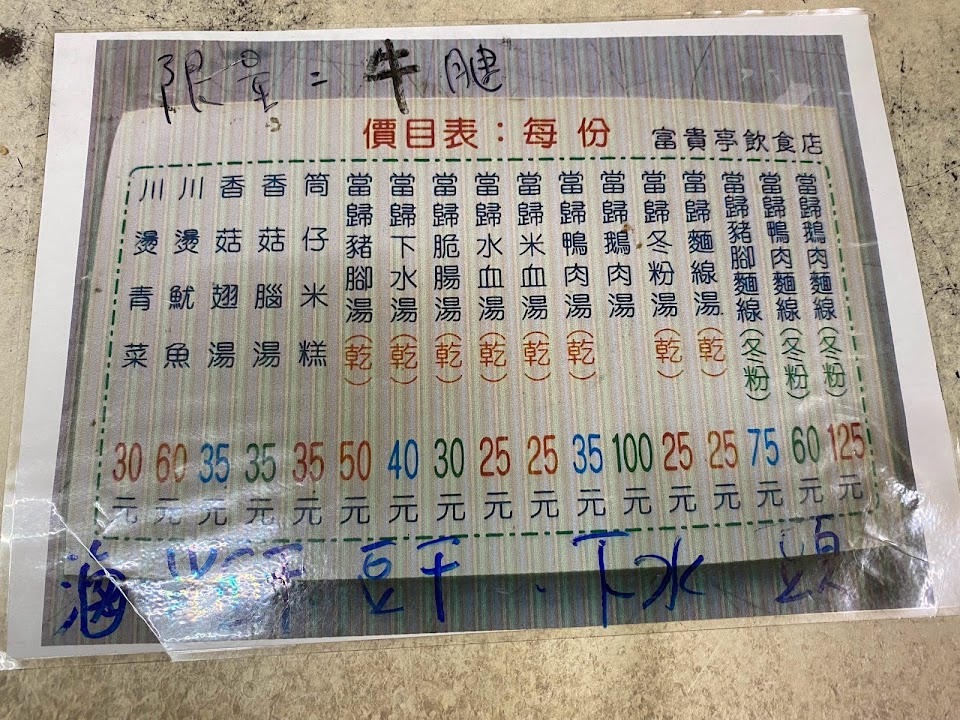 限量=牛腱
價目表：每份 富貴亭飲食店
當歸鵝肉麵線(冬粉) 125元
當歸鴨肉麵線(冬粉) 60元
當歸豬腳麵線(冬粉) 75元
當歸麵線湯(乾) 25元
當歸冬粉湯(乾) 25元
當歸鵝肉湯 100元
當歸鴨肉湯(乾) 35元
當歸米血湯(乾) 25元
當歸水血湯(乾) 25元
當歸脆腸湯(乾) 30元
當歸下水湯(乾) 40元
當歸豬腳湯(乾) 50元
筒仔米糕 35元
香菇腦湯 35元
香菇翅湯 35元
川燙魷魚 60元
川燙青菜 30元
海 豆干．下水 頭